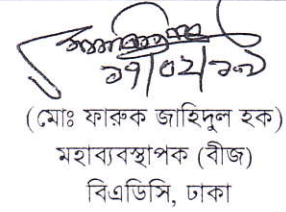 (মোঃ ফারুক জাহিদুল হক)
মহাব্যবস্থাপক (বীজ)
বিএডিসি, ঢাকা